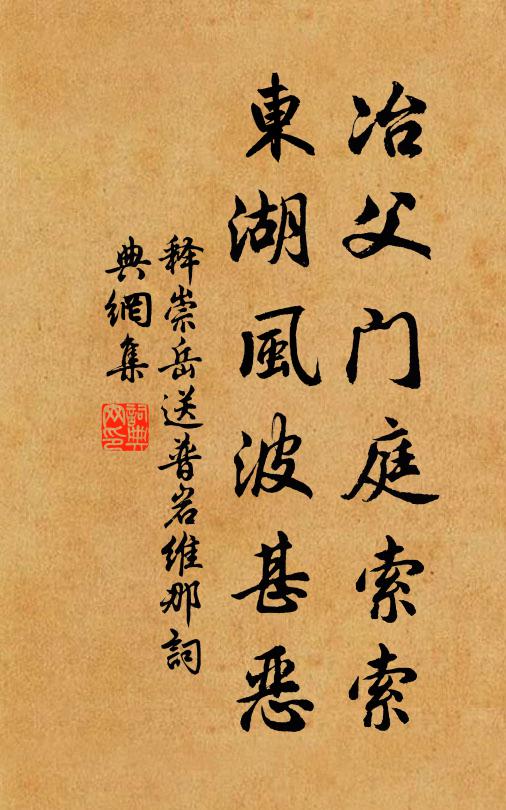 冶父门庭索索
東湖風波甚惡
释崇岳送普岩维那詞
典網集
詞典網印